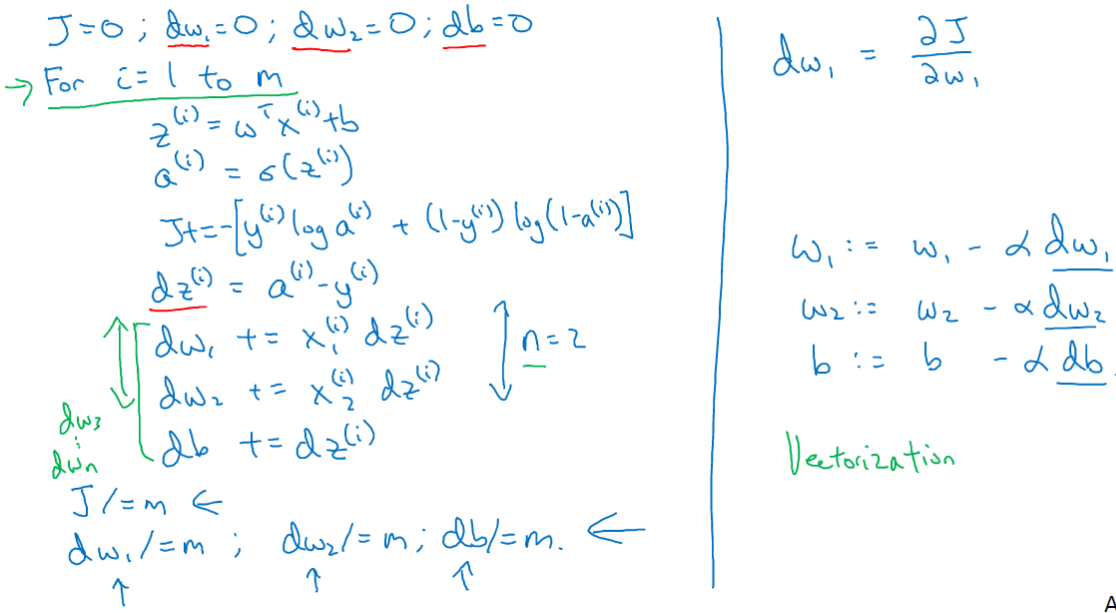 J=0 ; dw₁=0 ; dw₂=0 ; db=0
→ For i=1 to m
z⁽ⁱ⁾ = wᵀx⁽ⁱ⁾+b
a⁽ⁱ⁾ = σ(z⁽ⁱ⁾)
J+=-[y⁽ⁱ⁾ log a⁽ⁱ⁾ + (1-y⁽ⁱ⁾) log(1-a⁽ⁱ⁾)]
dz⁽ⁱ⁾ = a⁽ⁱ⁾-y⁽ⁱ⁾
dw₁ += x₁⁽ⁱ⁾ dz⁽ⁱ⁾
dw₂ += x₂⁽ⁱ⁾ dz⁽ⁱ⁾
n=2
db += dz⁽ⁱ⁾
dw₃
⋮
dwₙ
J/=m ←
dw₁/=m ; dw₂/=m ; db/=m. ←
↑ ↑ ↑
dw₁ = ∂J/∂w₁
w₁ := w₁ - α dw₁
w₂ := w₂ - α dw₂
b := b - α db.
Vectorization
A